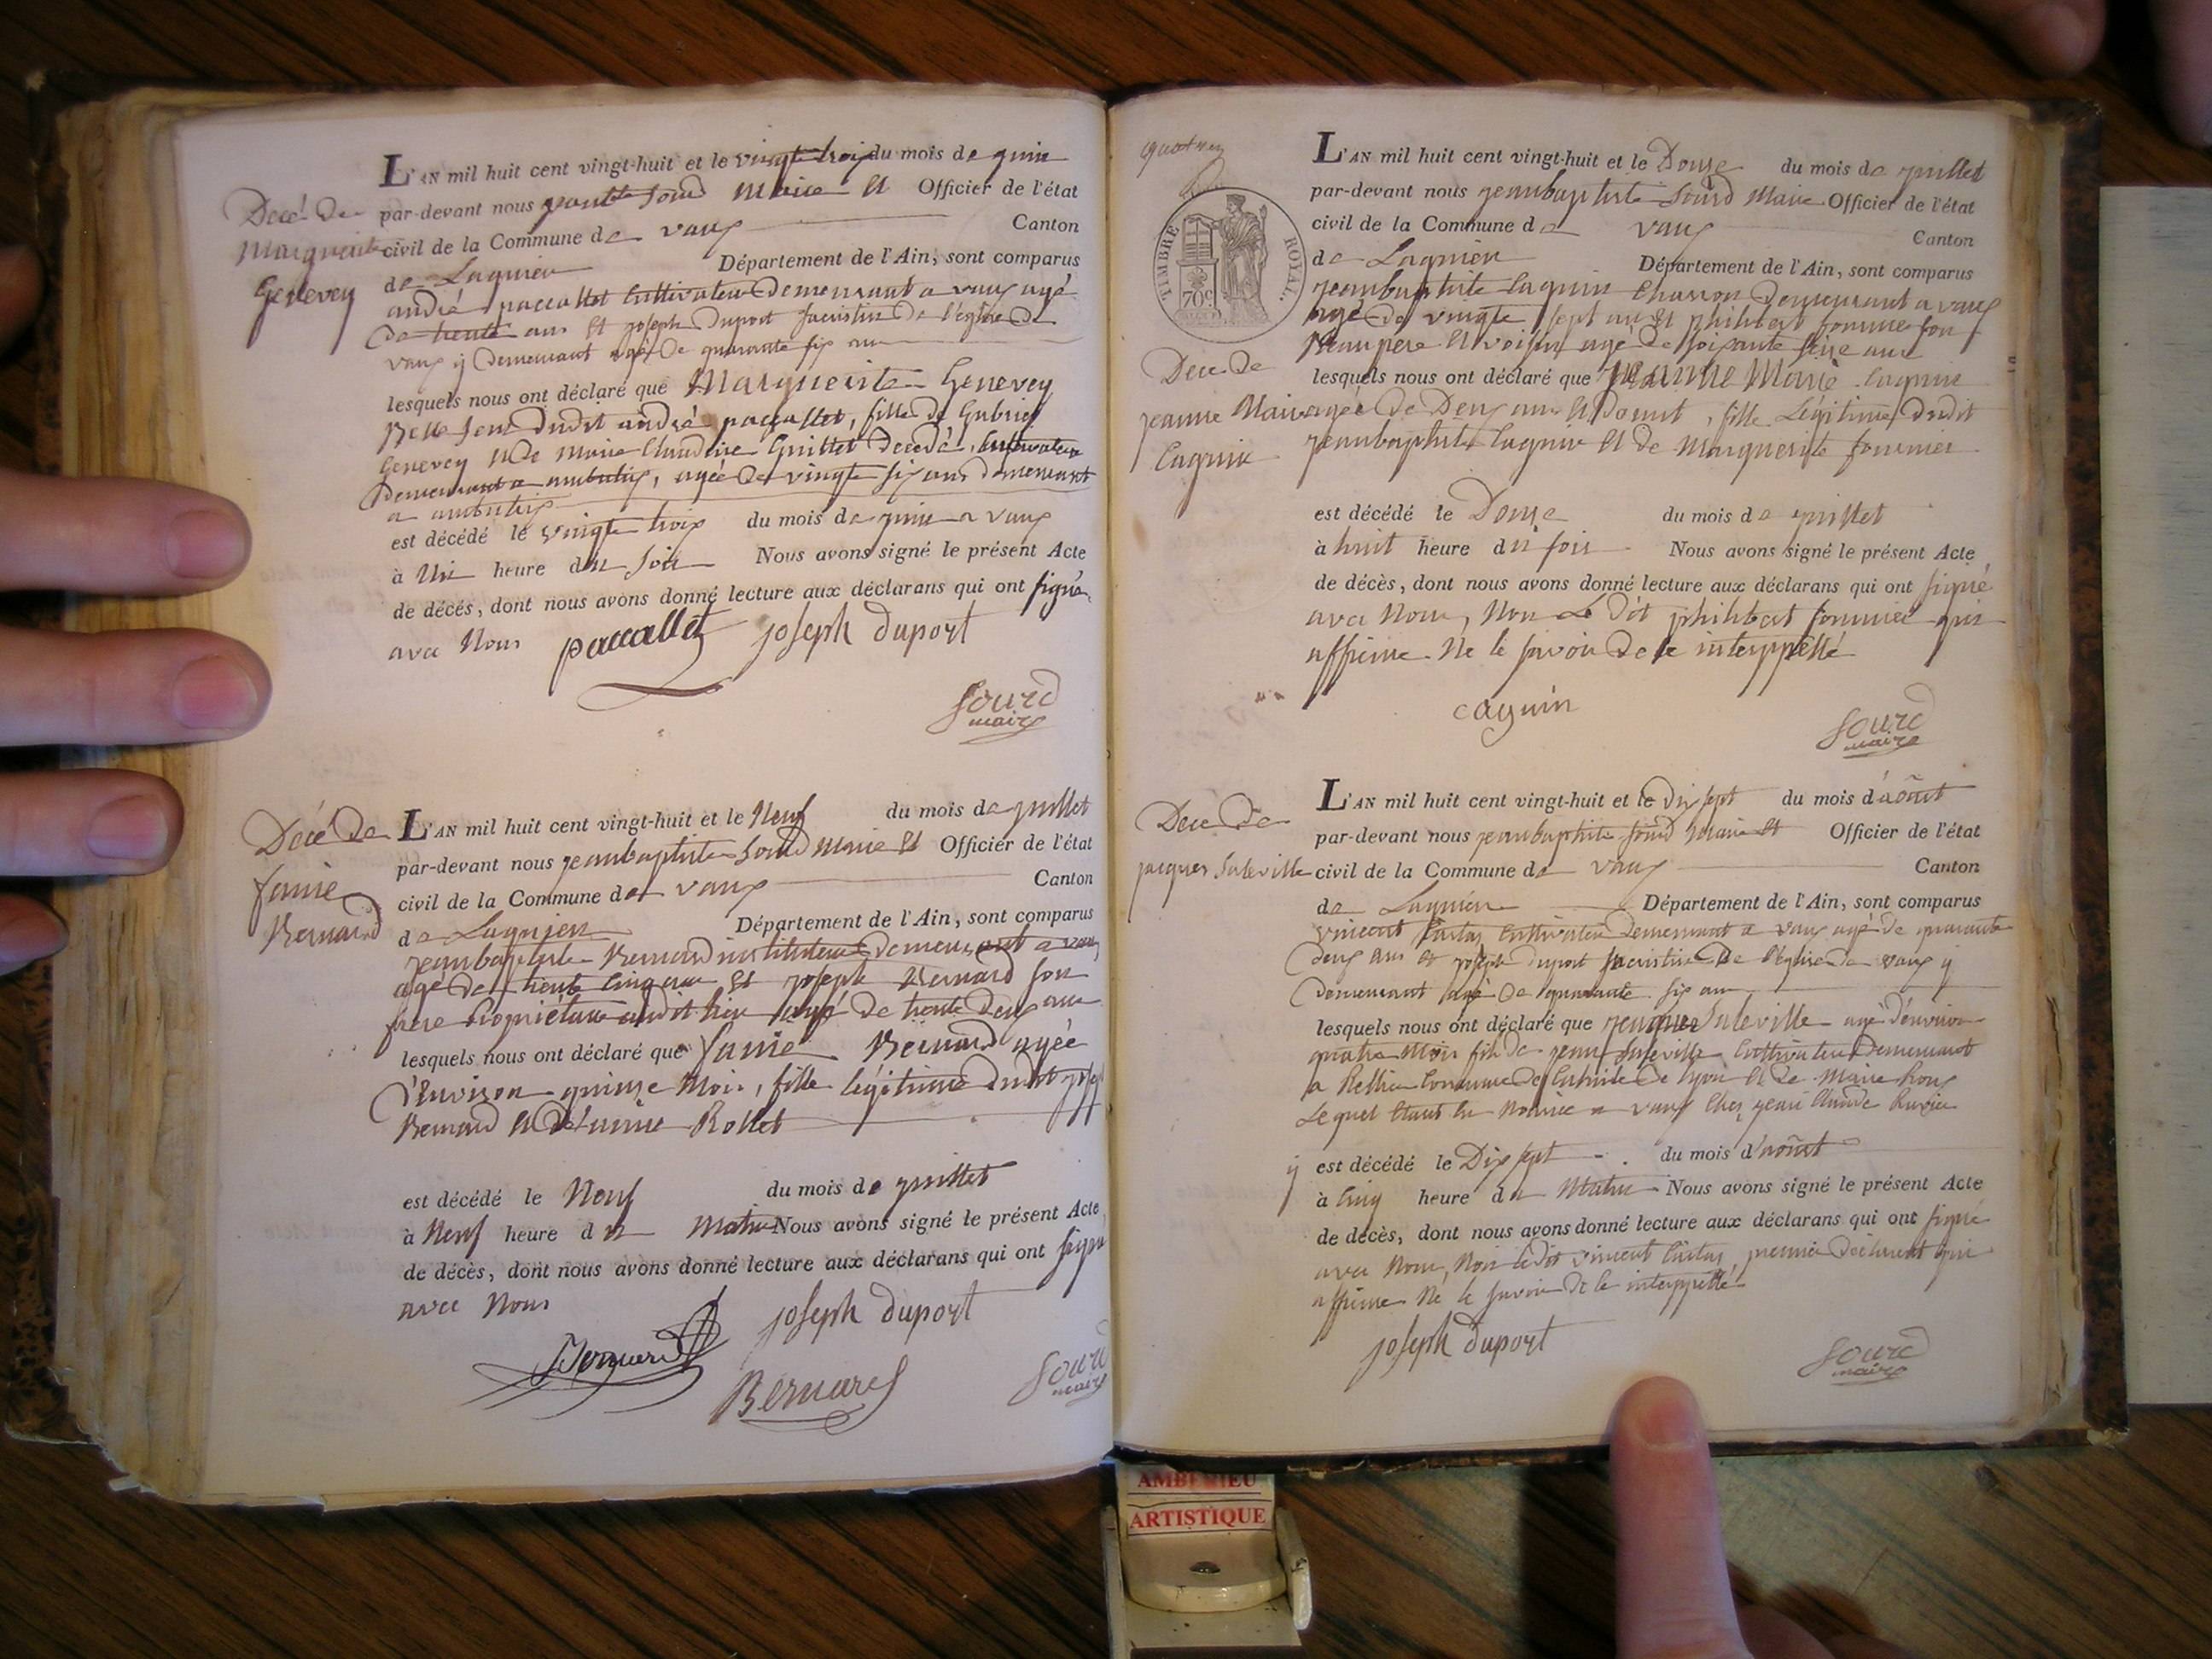 L'AN mil huit cent vingt-huit et le vingt trois du mois de juin
par-devant nous jean bte Sourd Maire et Officier de l'état
civil de la Commune de vaux Canton
de Lagnieu Département de l'Ain, sont comparus
Décé de
Marguerite
Genevey
andré paccallet Cultivateur demeurant a vaux agé
de trente ans et joseph duport Sacristin de l'église de
vaux y demeurant agé de quarante six ans
lesquels nous ont déclaré que Marguerite Genevey
Belle seur dudit andré paccallet, fille de Gabriel
Genevey et de Marie Claudine Guillet décédé, Cultivateur
demeurant a ambutrix, agée de vingt six ans demeurant
a ambutrix
est décédé le vingt trois du mois de juin a vaux
à Une heure du Soir Nous avons signé le présent Acte
de décés, dont nous avons donné lecture aux déclarans qui ont signé
avec Nous paccallet joseph duport
Sourd
maire
Décé de
fanie
Bernard
L'AN mil huit cent vingt-huit et le Neuf du mois de juillet
par-devant nous jeanbaptiste Sourd Maire et Officier de l'état
civil de la Commune de vaux Canton
de Lagnieu Département de l'Ain, sont comparus
jeanbaptiste Bernard instituteur demeurant a vaux
agé de trente cinq ans et joseph Bernard son
frere Propriétaire audit lieu agé de trente deux ans
lesquels nous ont déclaré que fanie Bernard agée
d'Environ quinze Mois, fille légitime dudit
Bernard et de Rollet
est décédé le Neuf du mois de juillet
à Neuf heure du Matin Nous avons signé le présent Acte
de décès, dont nous avons donné lecture aux déclarans qui ont signé
avec Nous
Bernard joseph duport
Bernard
Sourd
maire
L'AN mil huit cent vingt-huit et le Douze du mois de juillet
par-devant nous jeanbaptiste Sourd Maire Officier de l'état
civil de la Commune de vaux Canton
de Lagnieu Département de l'Ain, sont comparus
TIMBRE ROYAL.
70c
Déce de
jeanne Marie
Caguin
jeanbaptiste Caguin Charron demeurant a vaux
agé de vingt sept ans et philibert fournier son
Beaupere et voisin agé de soixante seize ans
lesquels nous ont déclaré que jeanne Marie Caguin
agée de Deux ans et demit, fille Légitime dudit
jeanbaptiste Caguin et de Marguerite fournier
est décédé le Douze du mois de juillet
à huit heure du soir Nous avons signé le présent Acte
de décès, dont nous avons donné lecture aux déclarans qui ont signé
avec Nous, Non Le dit philibert fournier qui
affirme Ne le savoir de ce interppellé
caguin
Sourd
maire
Déce de
jacques Saleville
L'AN mil huit cent vingt-huit et le dix sept du mois d'aoûst
par-devant nous jeanbaptiste Sourd Maire et Officier de l'état
civil de la Commune de vaux Canton
de Lagnieu Département de l'Ain, sont comparus
vincent Cultivateur demeurant a vaux agé de quarante
deux ans et joseph duport sacristin de l'église de vaux y
demeurant agé de quarante six ans
lesquels nous ont déclaré que jacques Saleville agé d'environ
quatre Mois fils de jean Saleville Cultivateur Demeurant
a Commune de de lyon et de Marie
Lequel Etant En Nourice a vaux Chez jean Claude
y est décédé le Dix sept du mois d'aoûst
à Cinq heure du Matin Nous avons signé le présent Acte
de décès, dont nous avons donné lecture aux déclarans qui ont signé
avec Nous, Non ledit vincent premier déclarant qui
affirme Ne le savoir de ce interppellé
joseph duport
Sourd
maire
AMBERIEU
ARTISTIQUE